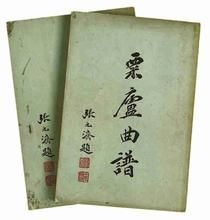 粟廬曲譜
張元濟題
張元濟題